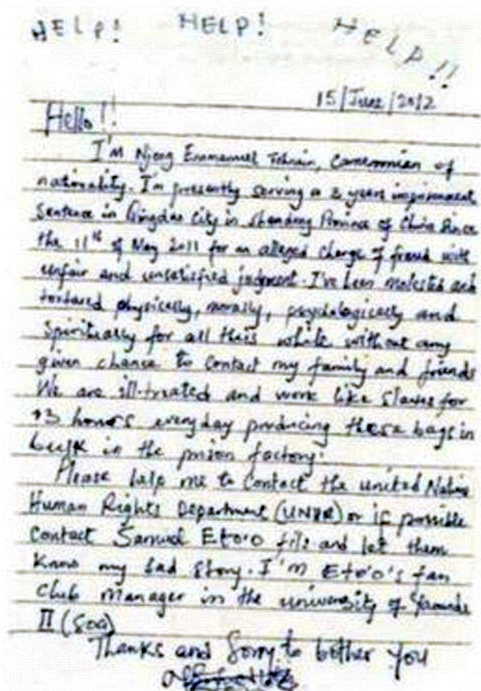 HELP! HELP! HELP!!
15/June/2012
Hello!!
I'm Njong Emmanuel Tohnain, Cameroonian of
nationality. I'm presently serving a 3 years imprisonment
Sentence in Qingdao City in shandong Province of China Since
the 11th of May 2011 for an alleged charge of fraud with
unfair and unsatisfied judgment. I've been molested and
tortured physically, morally, psychologically and
Spiritually for all this while without any
given chance to contact my family and friends
We are ill-treated and work like slaves for
13 hours everyday producing these bags in
bulk in the prison factory.
Please help me to contact the united Nations
Human Rights Department (UNHR) or if possible
contact Samuel Eto'o fils and let them
know my sad story. I'm Eto'o's fan
club manager in the university of Yaounde
II (Soa)
Thanks and Sorry to bother You